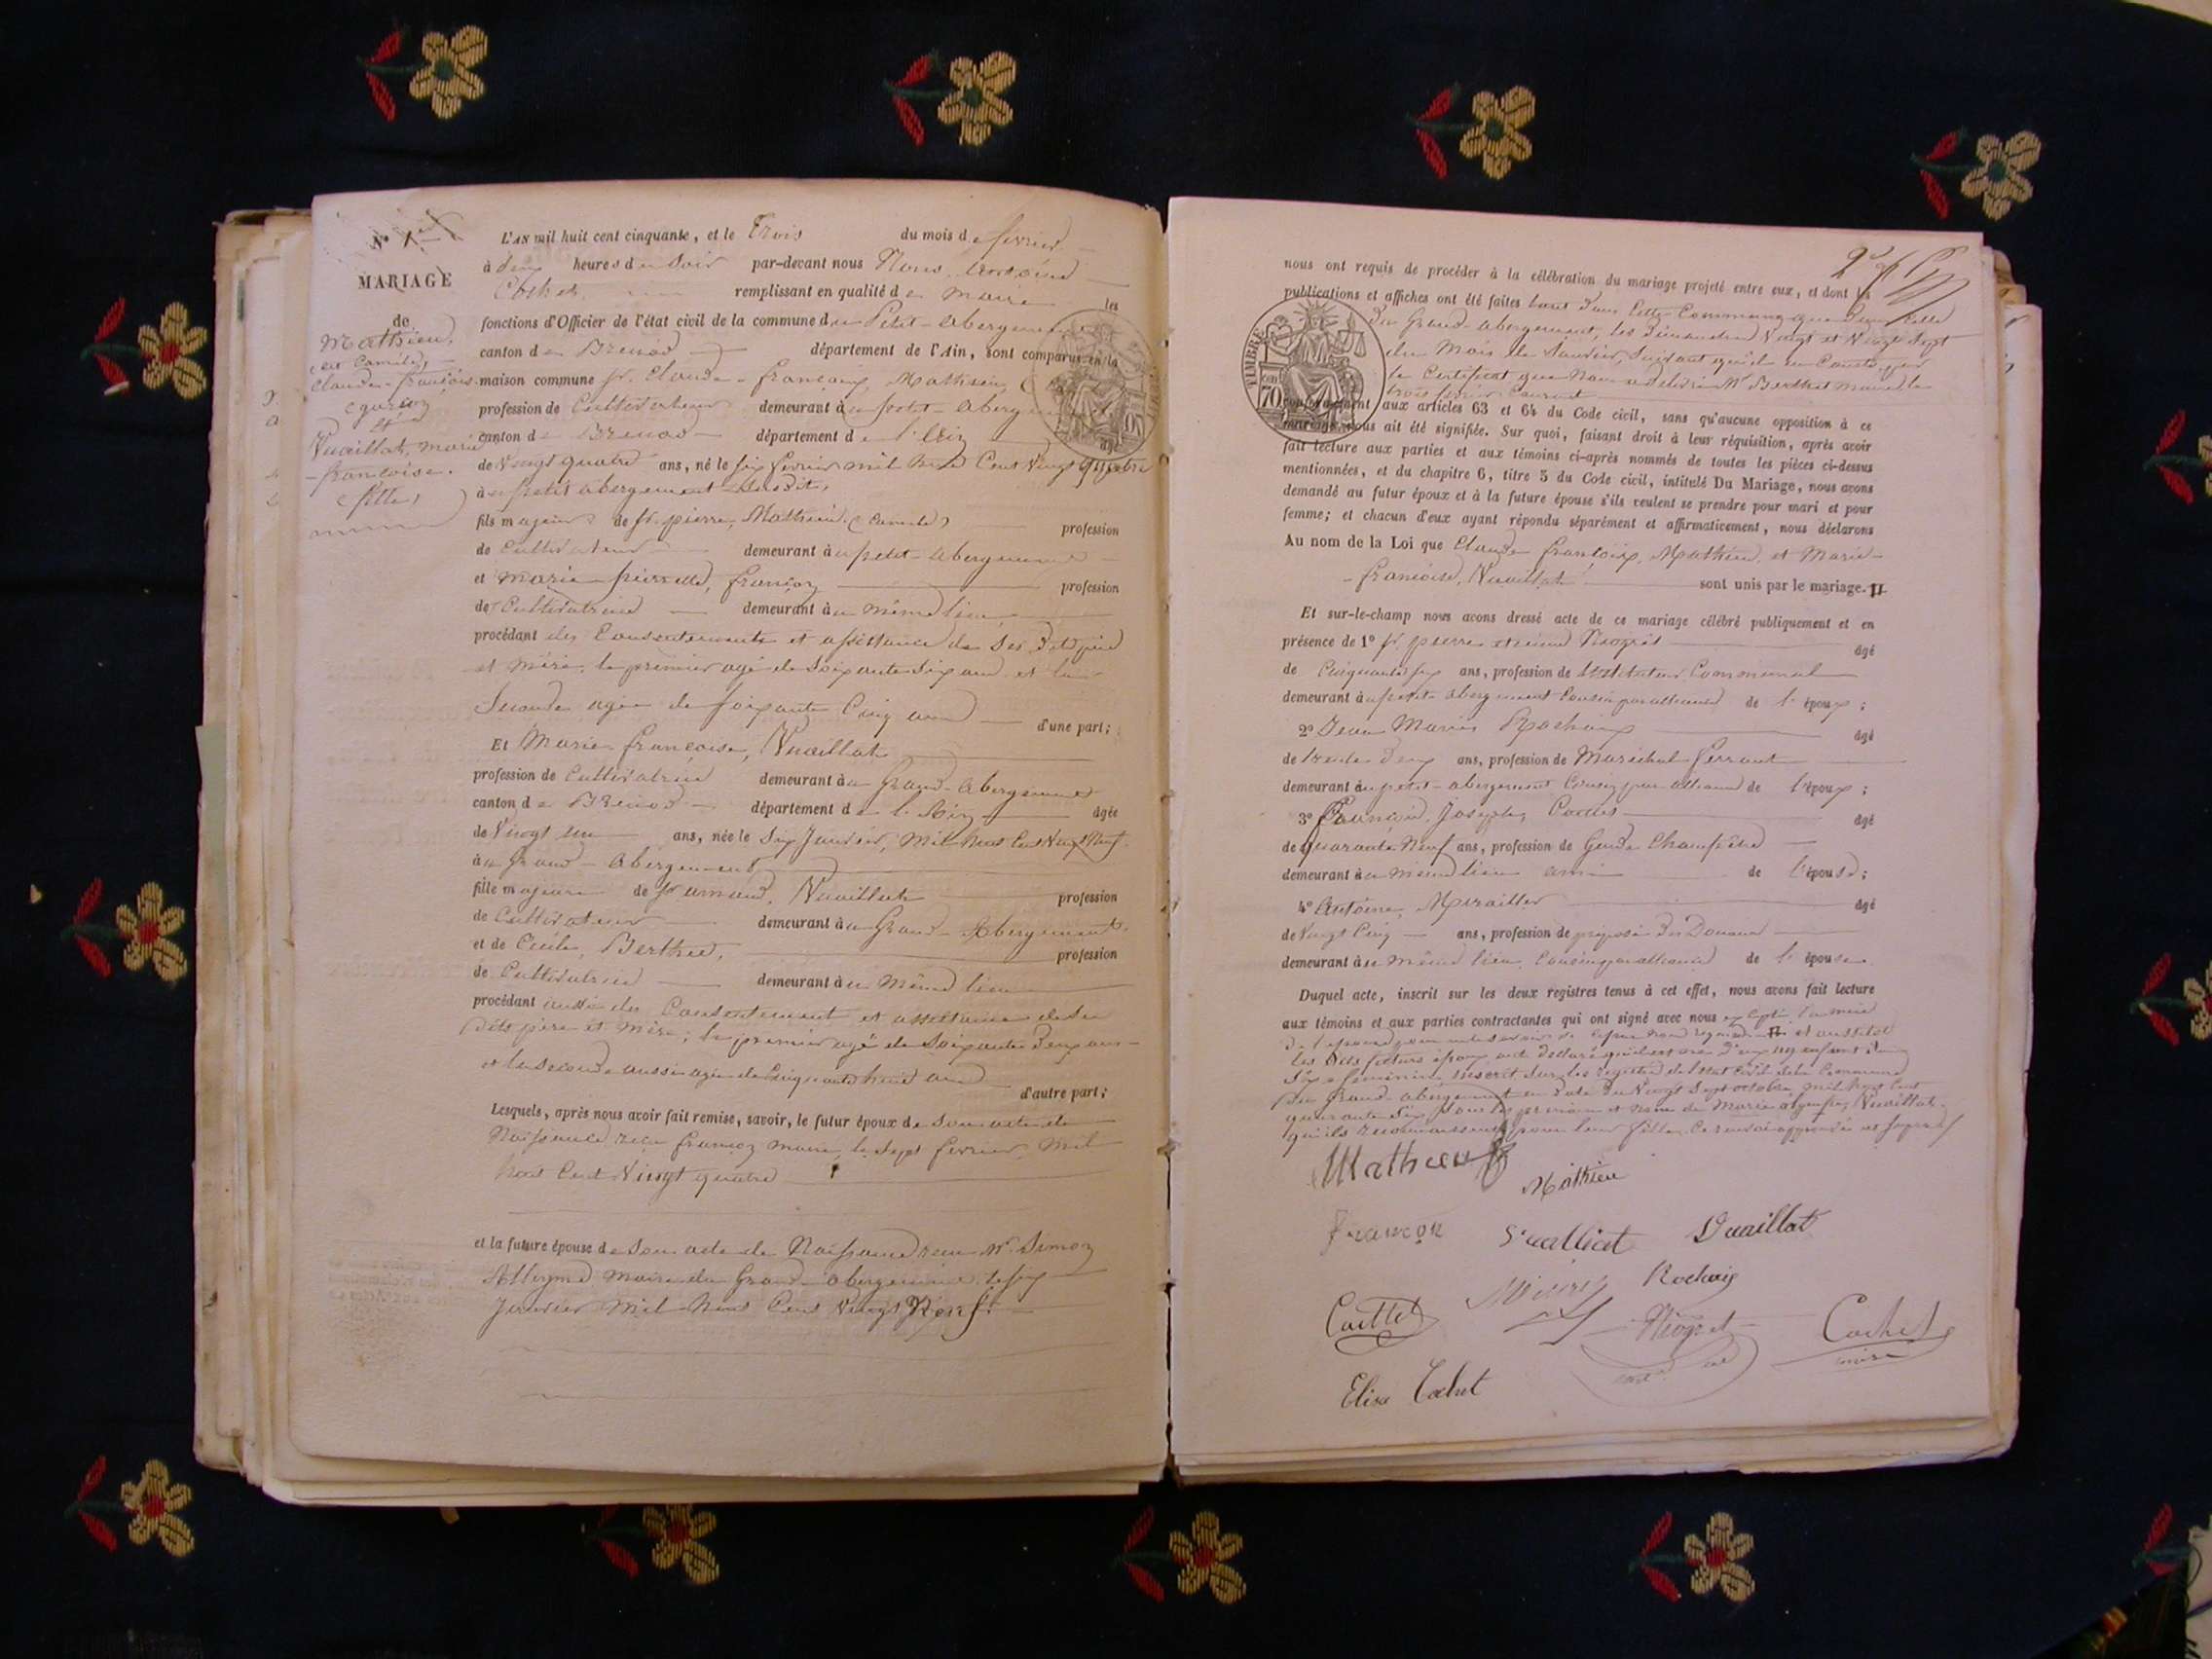 N° 1er
MARIAGE
de
Mathieu,
Camille,
Claude-françois
garçon
et
Vuaillat, marie
-françoise.
fille,
L'AN mil huit cent cinquante, et le Trois du mois de février
à deux heures du Soir par-devant nous Nous, Antoine
Cochet remplissant en qualité de maire les
fonctions d'Officier de l'état civil de la commune du Petit-Abergement
canton de Brenod département de l'Ain, sont comparus en la
maison commune sr. Claude-françois, Mathieu,
profession de Cultivateur demeurant au petit-abergement
canton de Brenod département de l'Ain âgé
de Vingt quatre ans, né le six février mil huit Cent Vingt quatre
au petit abergement susdit,
fils majeur de sr. pierre, Mathieu (Camille) profession
de Cultivateur demeurant au petit-abergement
et marie-pierrette, françon profession
de Cultivatrice demeurant au même lieu
procédant des Consentements et assistance de ses dits père
et mère, le premier agé de Soixante Six ans et la
Seconde agée de soixante Cinq ans d'une part;
Et Marie françoise, Vuaillat
profession de Cultivatrice demeurant au Grand-Abergement
canton de Brenod département de l'Ain âgée
de Vingt un ans, née le Six Janvier, Mil huit Cent Vingt Neuf
au Grand-Abergement
fille majeure de sr armand, Vuaillat profession
de Cultivateur demeurant au Grand-Abergement
et de Cécile, Berthet, profession
de Cultivatrice demeurant au Même lieu
procédant aussi des Consentement et assistance de ses
dits père et mère; le premier agé de Soixante deux ans
et la seconde aussi agée de Cinquante huit ans d'autre part;
Lesquels, après nous avoir fait remise, savoir, le futur époux de son acte de
Naissance reçu françon maire, le Sept février, Mil
huit Cent Vingt quatre
et la future épouse de Son acte de Naissance reçu Mr. Simon
maire du Grand-abergement le six
Janvier Mil huit Cent Vingt Neuf.
2e
nous ont requis de procéder à la célébration du mariage projeté entre eux, et dont les
publications et affiches ont été faites tant dans Cette Commune que dans Celle
du Grand-abergement, les dimanches Vingt et Vingt Sept
du Mois de Janvier, suivant qu'il en Conste par
le Certificat que Nous a délivré Mr Berthet maire le
trois février Courant
TIMBRE
70
conformément aux articles 63 et 64 du Code civil, sans qu'aucune opposition à ce
mariage nous ait été signifiée. Sur quoi, faisant droit à leur réquisition, après avoir
fait lecture aux parties et aux témoins ci-après nommés de toutes les pièces ci-dessus
mentionnées, et du chapitre 6, titre 5 du Code civil, intitulé Du Mariage, nous avons
demandé au futur époux et à la future épouse s'ils veulent se prendre pour mari et pour
femme; et chacun d'eux ayant répondu séparément et affirmativement, nous déclarons
Au nom de la Loi que Claude françois, Mathieu, et Marie-
-françoise, Vuaillat sont unis par le mariage.
Et sur-le-champ nous avons dressé acte de ce mariage célébré publiquement et en
présence de 1° sr. pierre Niogret âgé
de Cinquante six ans, profession de Instituteur Communal
demeurant au petit abergement Cousin par alliance de l'époux;
2° Jean Marie Rochaix âgé
de trente deux ans, profession de Maréchal ferrant
demeurant au petit-abergement Cousin par alliance de l'époux;
3° François, Joseph, âgé
de quarante Neuf ans, profession de Garde Champêtre
demeurant au même lieu ami de l'épouse;
4° Antoine, âgé
de Vingt Cinq ans, profession de préposé des Douanes
demeurant au même lieu, Cousin par alliance de l'épouse.
Duquel acte, inscrit sur les deux registres tenus à cet effet, nous avons fait lecture
aux témoins et aux parties contractantes qui ont signé avec nous excepté la mère
de l'épouse et aussitôt
les dits futurs époux ont déclaré qu'il est né d'eux un enfant du
Sexe féminin, inscrit sur les registres de l'état civil de la Commune
du Grand-abergement en date du Vingt Sept octobre, mil huit Cent
quarante Six, sous les prénoms et Nom de Marie olympe, Vuaillat
qu'ils reconnaissent pour leur fille.
Mathieu
Mathieu
françon
Vuailliat
Vuaillat
Rochaix
Niogret
Cochet
maire
Elise Cochet